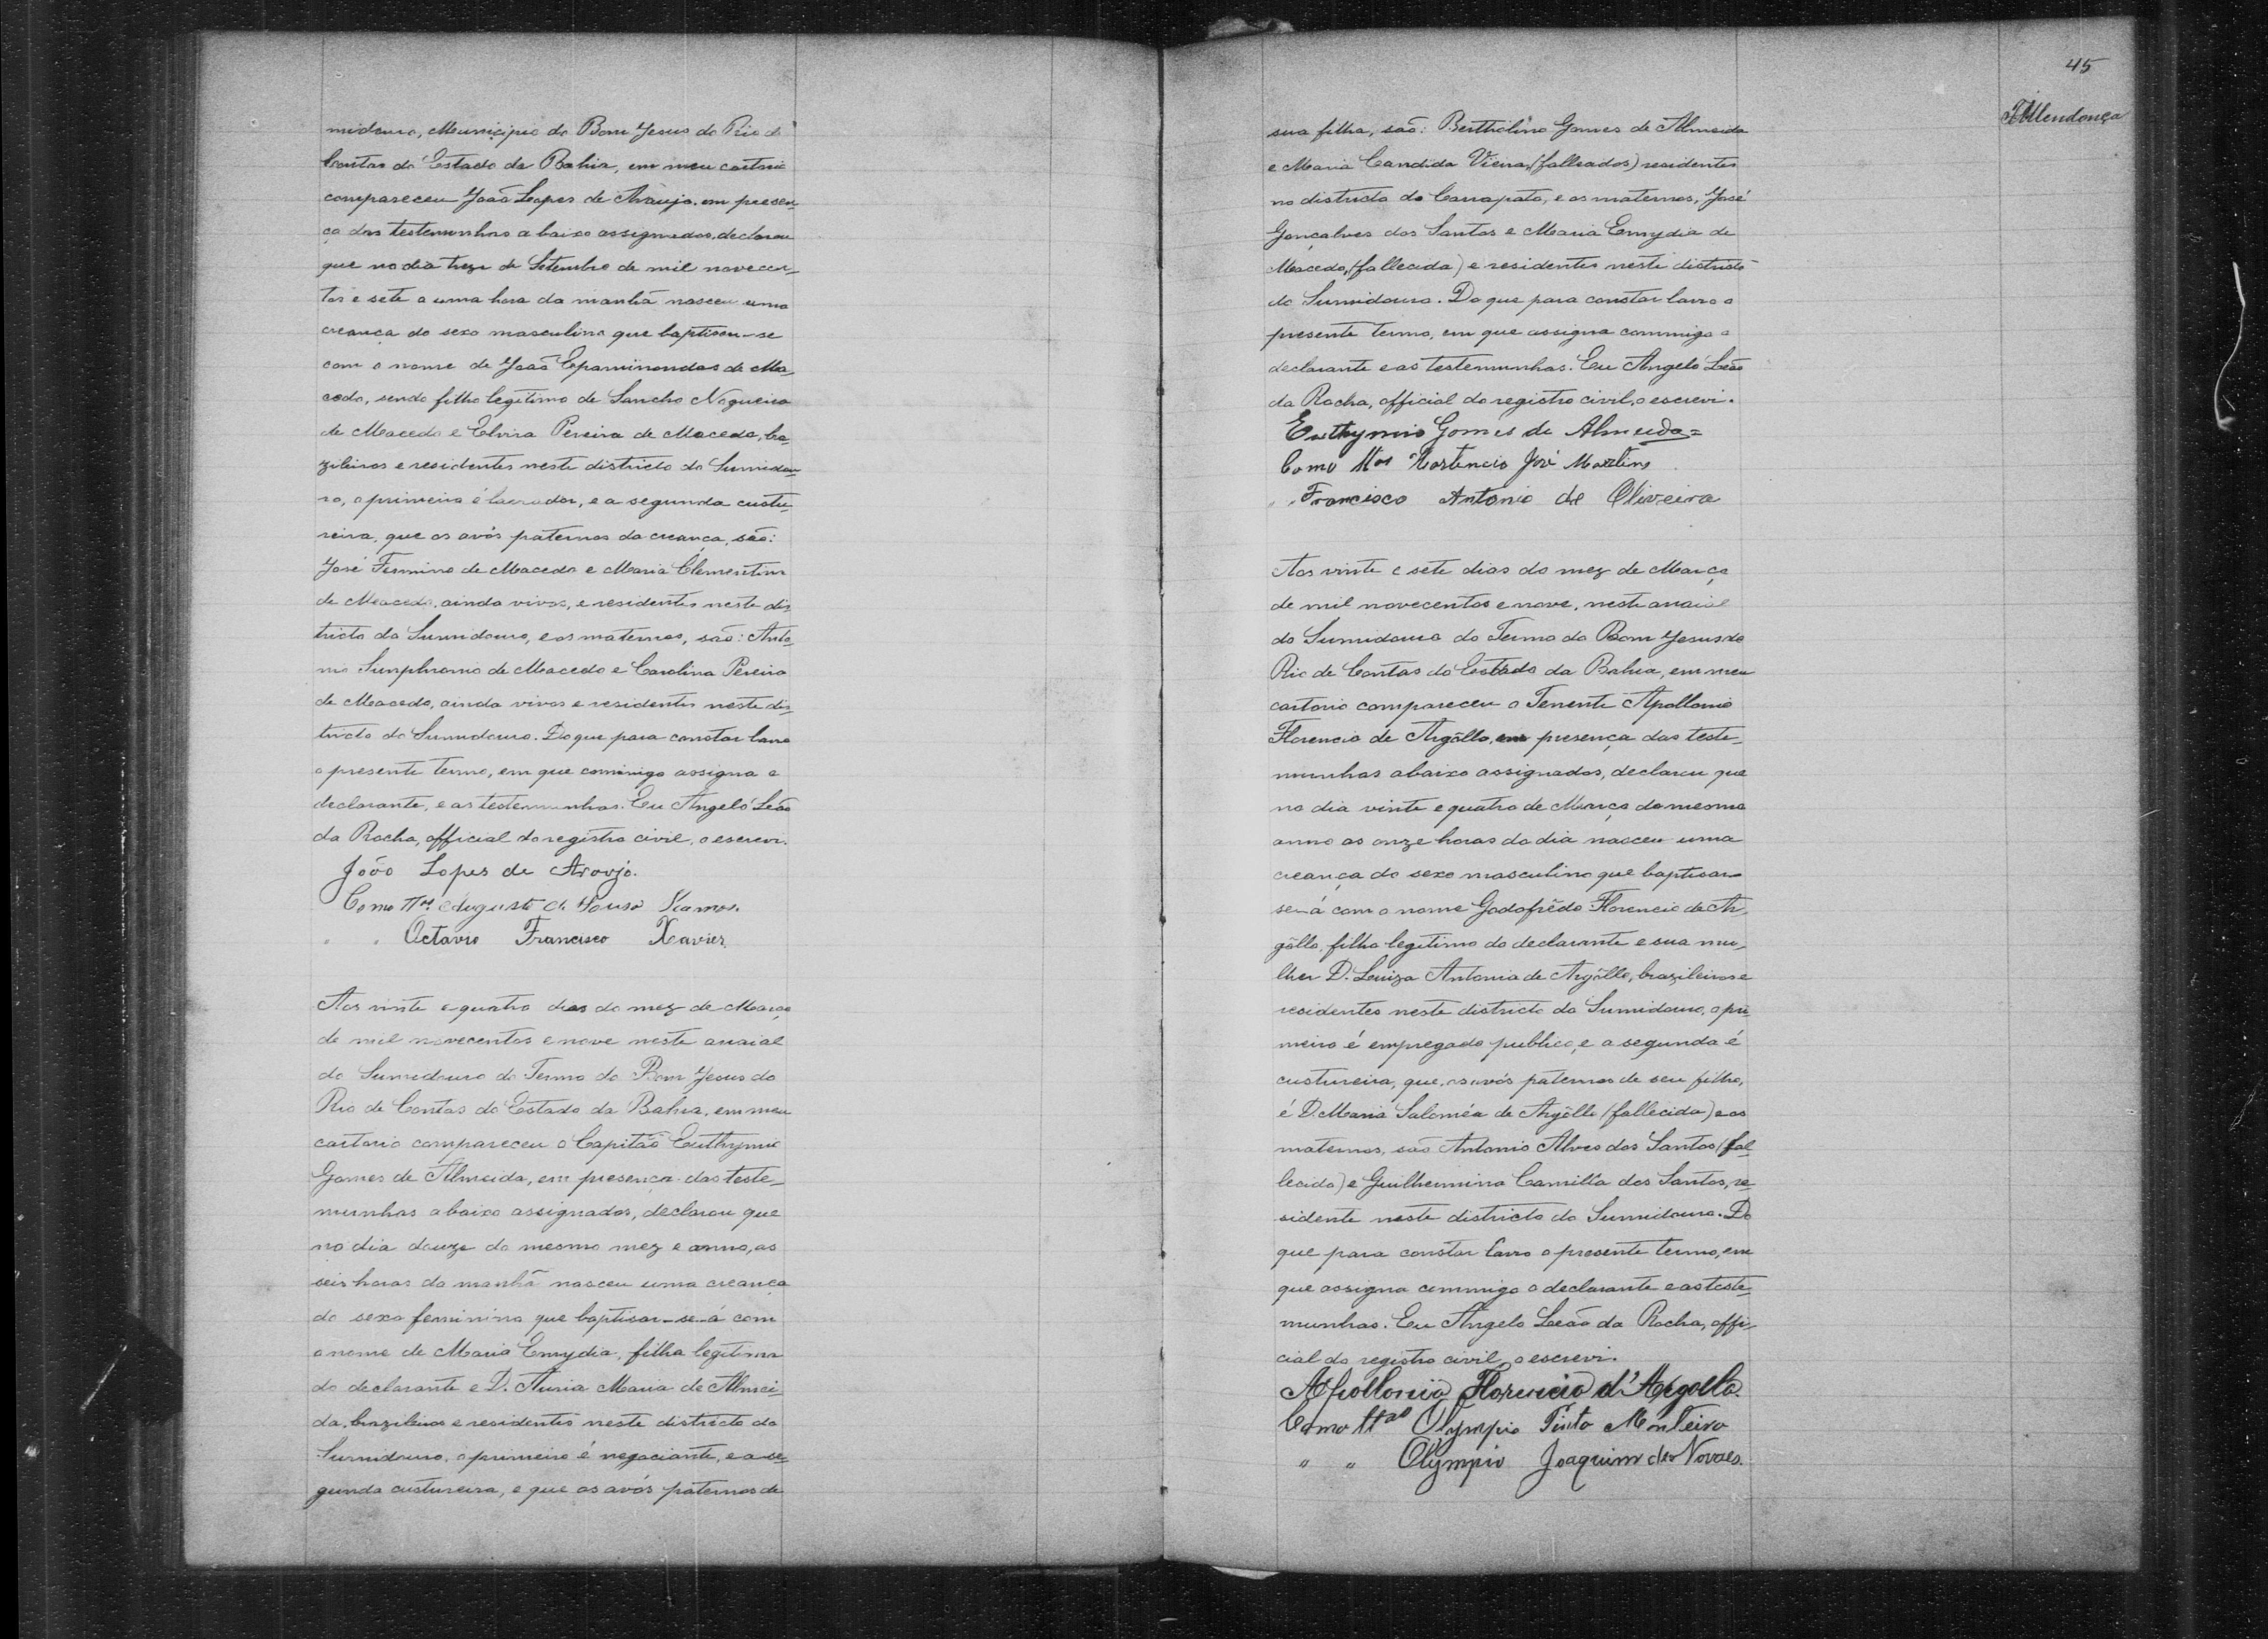 midouro, Municipio do Bom Jesus do Rio de
Contas do Estado da Bahia, em meu cartorio
compareceu João Lopes de Araujo, em presen-
ça das testemunhas abaixo assignadas, declarou
que no dia treze de Setembro de mil novecen-
tos e sete a uma hora da manhã nasceu uma
creança do sexo masculino que baptisou-se
com o nome de João Epaminondas de Ma-
cedo, sendo filho legitimo de Sancho Nogueira
de Macedo e Elvira Pereira de Macedo, bra-
zileiros e residentes neste districto do Sumidou-
ro, o primeiro é lavrador, e a segunda custu-
reira, que os avós paternos da creança, são:
José Firmino de Macedo e Maria Clementina
de Macedo, ainda vivos, e residentes neste dis-
tricto do Sumidouro, e os maternos, são: Anto-
nio Simphronio de Macedo e Carolina Pereira
de Macedo, ainda vivos e residentes neste dis-
tricto do Sumidouro. Do que para constar lavro
o presente termo, em que commigo assigna o
declarante, e as testemunhas. Eu Angelo Leão
da Rocha, official do registro civil, o escrevi.
João Lopes de Aroujo.
Como Ttas Augusto de Souza Ramos.
" " Octavio Francisco Xavier
Aos vinte e quatro dias do mez de Março
de mil novecentos e nove neste arraial
do Sumidouro do Termo do Bom Jesus do
Rio de Contas do Estado da Bahia, em meu
cartorio compareceu o Capitão Euthymio
Gomes de Almeida, em presença das teste-
munhas abaixo assignadas, declarou que
no dia douze do mesmo mez e anno, as
seis horas da manhã nasceu uma creança
do sexo feminino que baptisar-se-á com
o nome de Maria Emydia, filha legitima
do declarante e D. Auria Maria de Almei-
da, brazileiros e residentes neste districto do
Sumidouro, o primeiro é negociante, e a se-
gunda custureira, e que os avós paternos de
45
Mendonça
sua filha, são: Bertholino Gomes de Almeida
e Maria Candida Vieira, (falleados) residentes
no districto do Carrapato, e os maternos, José
Gonçalves dos Santos e Maria Emydia de
Macedo, (fallecida) e residentes neste districto
do Sumidouro. Do que para constar lavro o
presente termo, em que assigna commigo o
declarante e as testemunhas. Eu Angelo Leão
da Rocha, official do registro civil, o escrevi.
Euthymio Gomes de Almeida=
Como ttas Hortencio José Martins
" " Francisco Antonio de Oliveira
Aos vinte e sete dias do mez de Março
de mil novecentos e nove, neste arraial
do Sumidouro do Termo do Bom Jesus do
Rio de Contas do Estado da Bahia, em meu
cartorio compareceu o Tenente Apollonio
Florencio de Argôllo, em presença das teste-
munhas abaixo assignadas, declarou que
no dia vinte e quatro de Março do mesmo
anno as onze horas do dia nasceu uma
creança do sexo masculino que baptisar-
se-á com o nome Godofrêdo Florencio de Ar-
gôllo, filho legitimo do declarante e sua mu-
lher D. Luiza Antonia de Argôllo, brazileiros e
residentes neste districto do Sumidouro, o pri-
meiro é empregado publico, e a segunda é
custureira, que, os avós paternos de seu filho,
é D. Maria Saloméa de Argôllo (fallecida) e os
maternos, são Antonio Alves dos Santos (fal-
lecido) e Guilhermina Camilla dos Santos, re-
sidente neste districto do Sumidouro. Do
que para constar lavro o presente termo, em
que assigna commigo o declarante e as teste-
munhas. Eu Angelo Leão da Rocha, offi-
cial do registro civil, o escrevi.
Apollonio Florencio d'Argollo.
Como ttas Olympio Pinto Monteiro
" " Olympio Joaquim de Novaes.